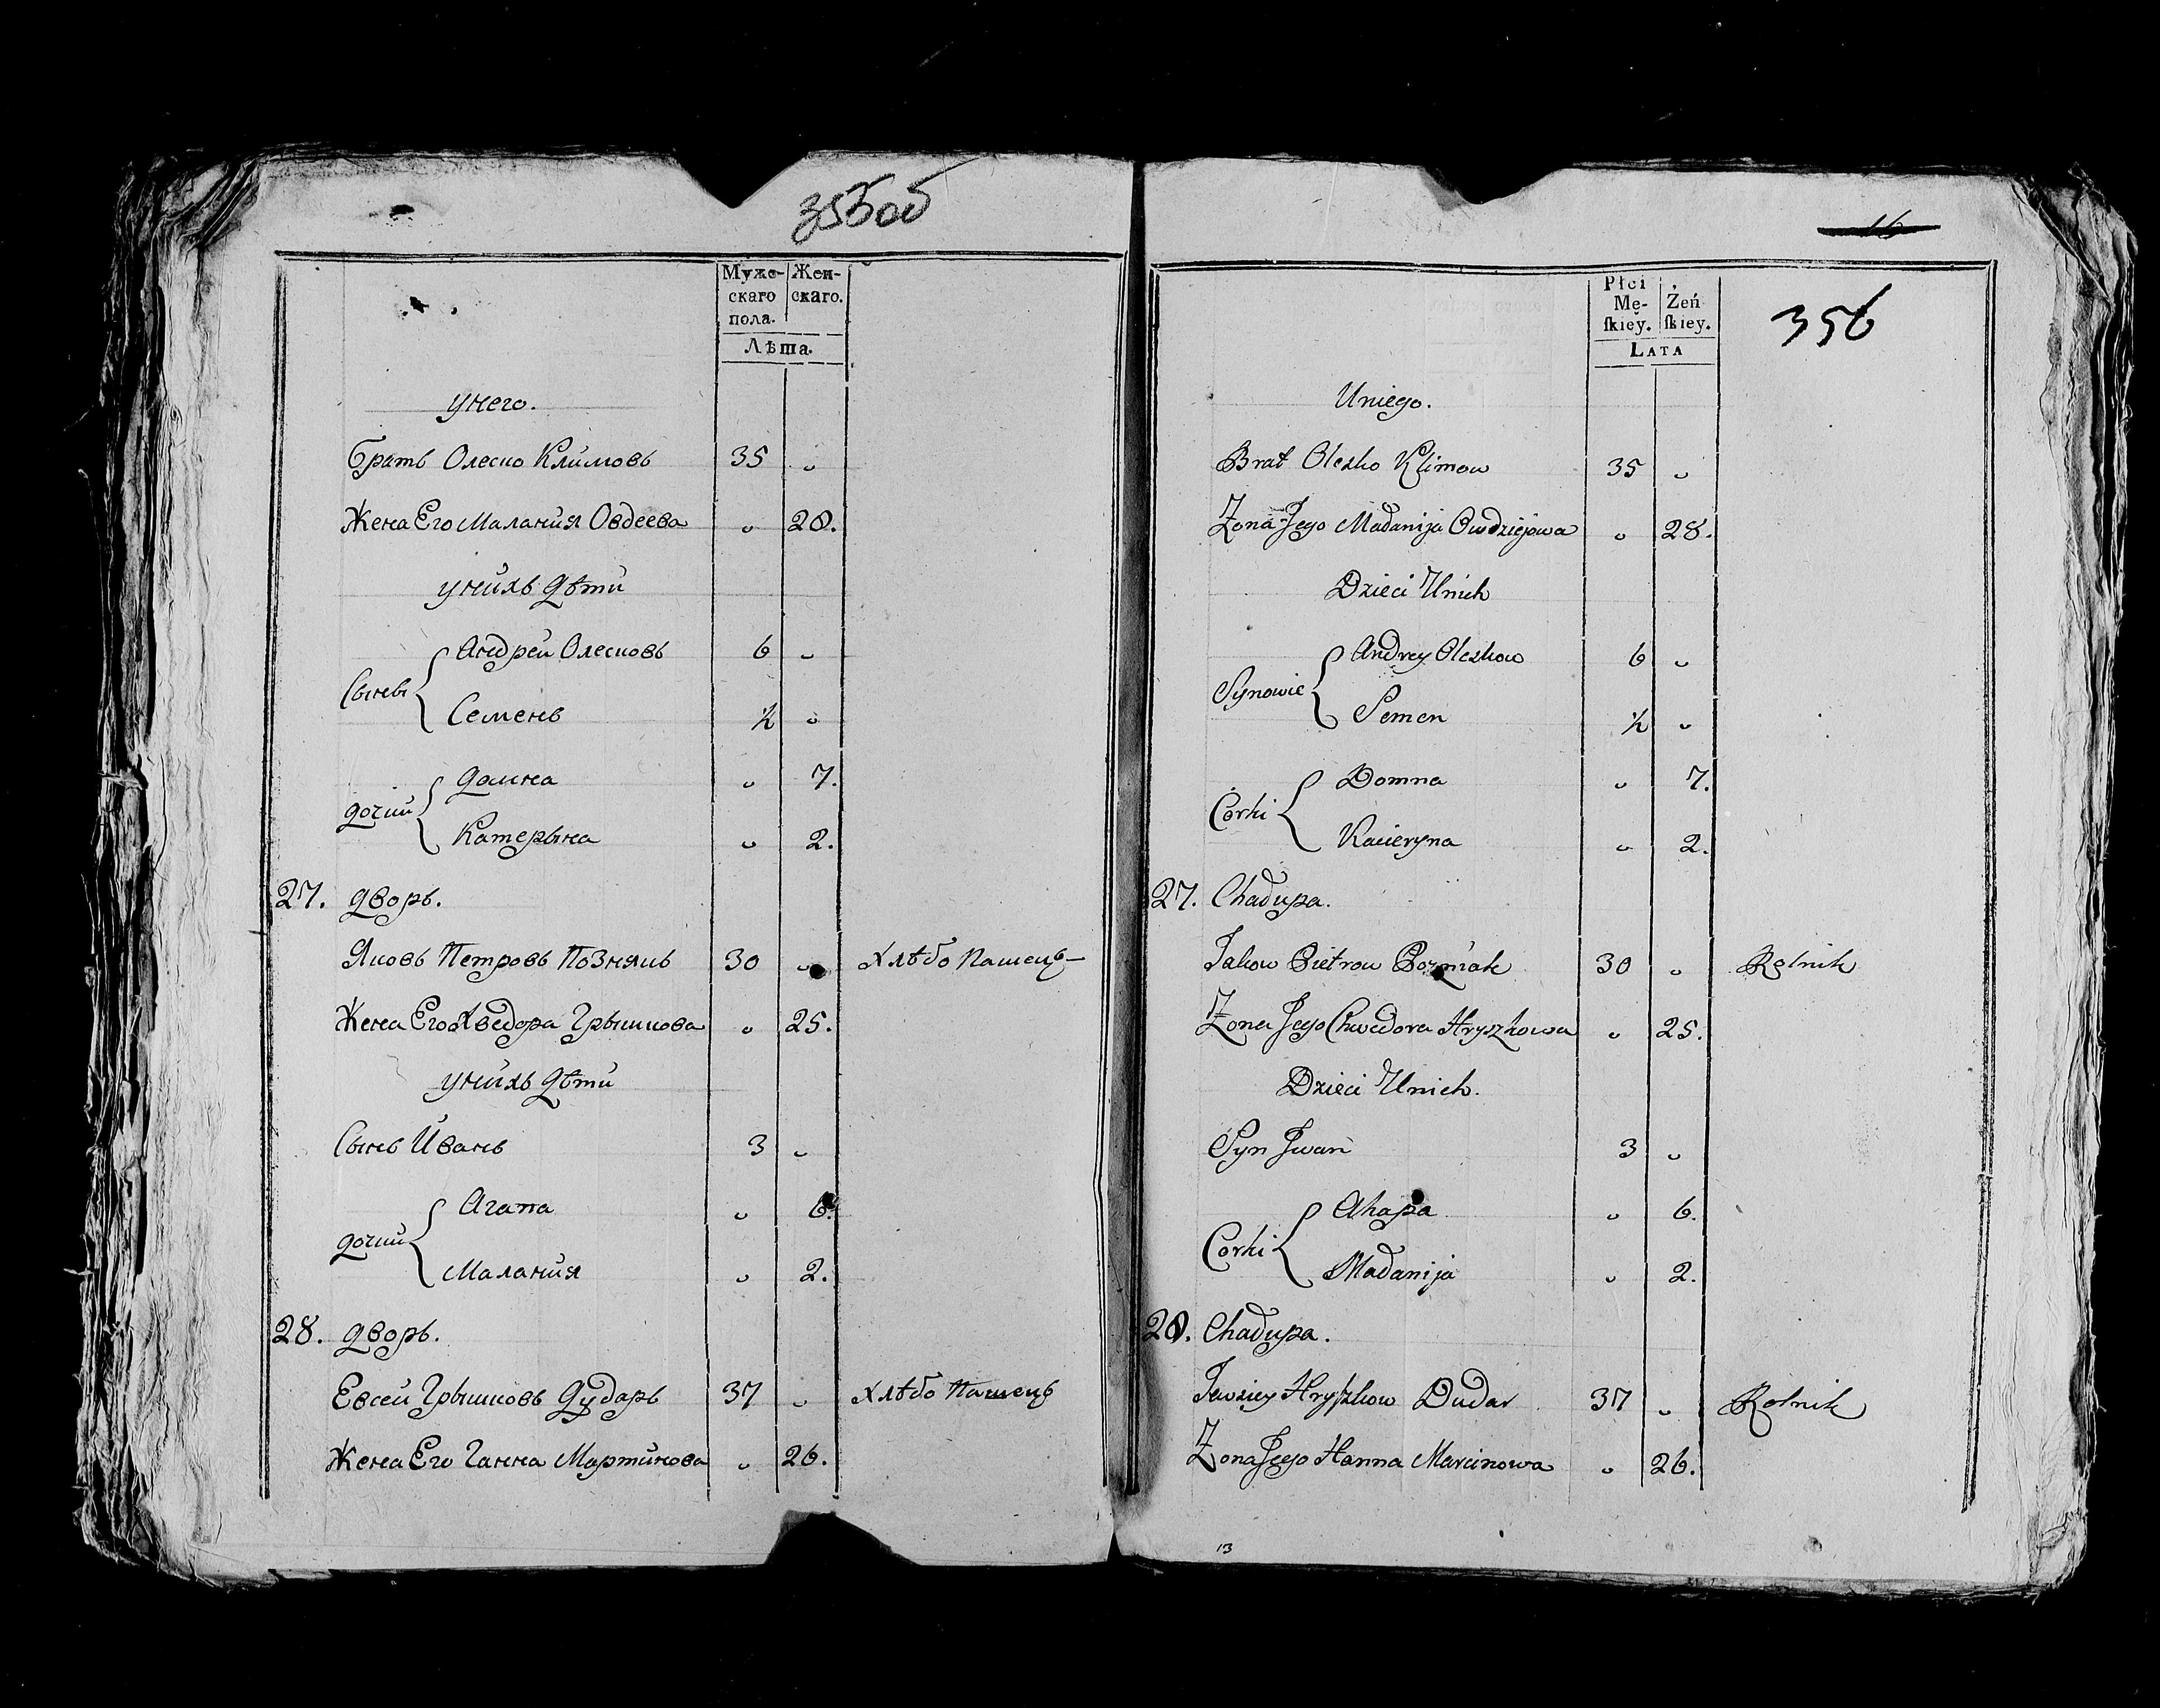 355об
Муже-
скаго
пола.
Жен-
скаго.
Лѣта.
унего.
братъ Олеско Климовъ 35 „
Жена Его Малания Овдеева „ 28.
унихъ дѣти
Сыны
Андрей Олесковъ 6 „
Семенъ ½ „
дочии
Домна „ 7.
Катерына „ 2.
27. дворъ.
Яковъ Петровъ Познякъ 30 „ Хлѣбо Пашецъ
Жена Его Хведора Грышкова „ 25.
унихъ дѣти
Сынъ Иванъ 3 „
дочии
Агапа „ 6.
Малания „ 2.
28. дворъ.
Евсей Грышковъ Дударъ 37 „ Хлѣбо Пашецъ
Жена Его Ганна Мартинова „ 26.
16
356
Płci
Mę-
ſkiey.
Żeń
ſkiey.
LATA
Uniego.
Brat Olesko Klimow 35 „
Zona Jego Małanija Owdziejowa „ 28.
Dzieci Unich
Synowie
Andrey Oleskow 6 „
Semen ½ „
Corki
Domna „ 7.
Kacieryna „ 2.
27. Chałupa.
Jakow Pietrow Pozniak 30 „ Rolnik
Zona Jego Chwedora Hryszkowa „ 25.
Dzieci Unich.
Syn Jwan 3 „
Corki
Ahapa „ 6.
Małanija „ 2.
28. Chałupa.
Jewsiey Hryſzkow Dudar 37 „ Rolnik
Zona Jego Hanna Marcinowa „ 26.
13